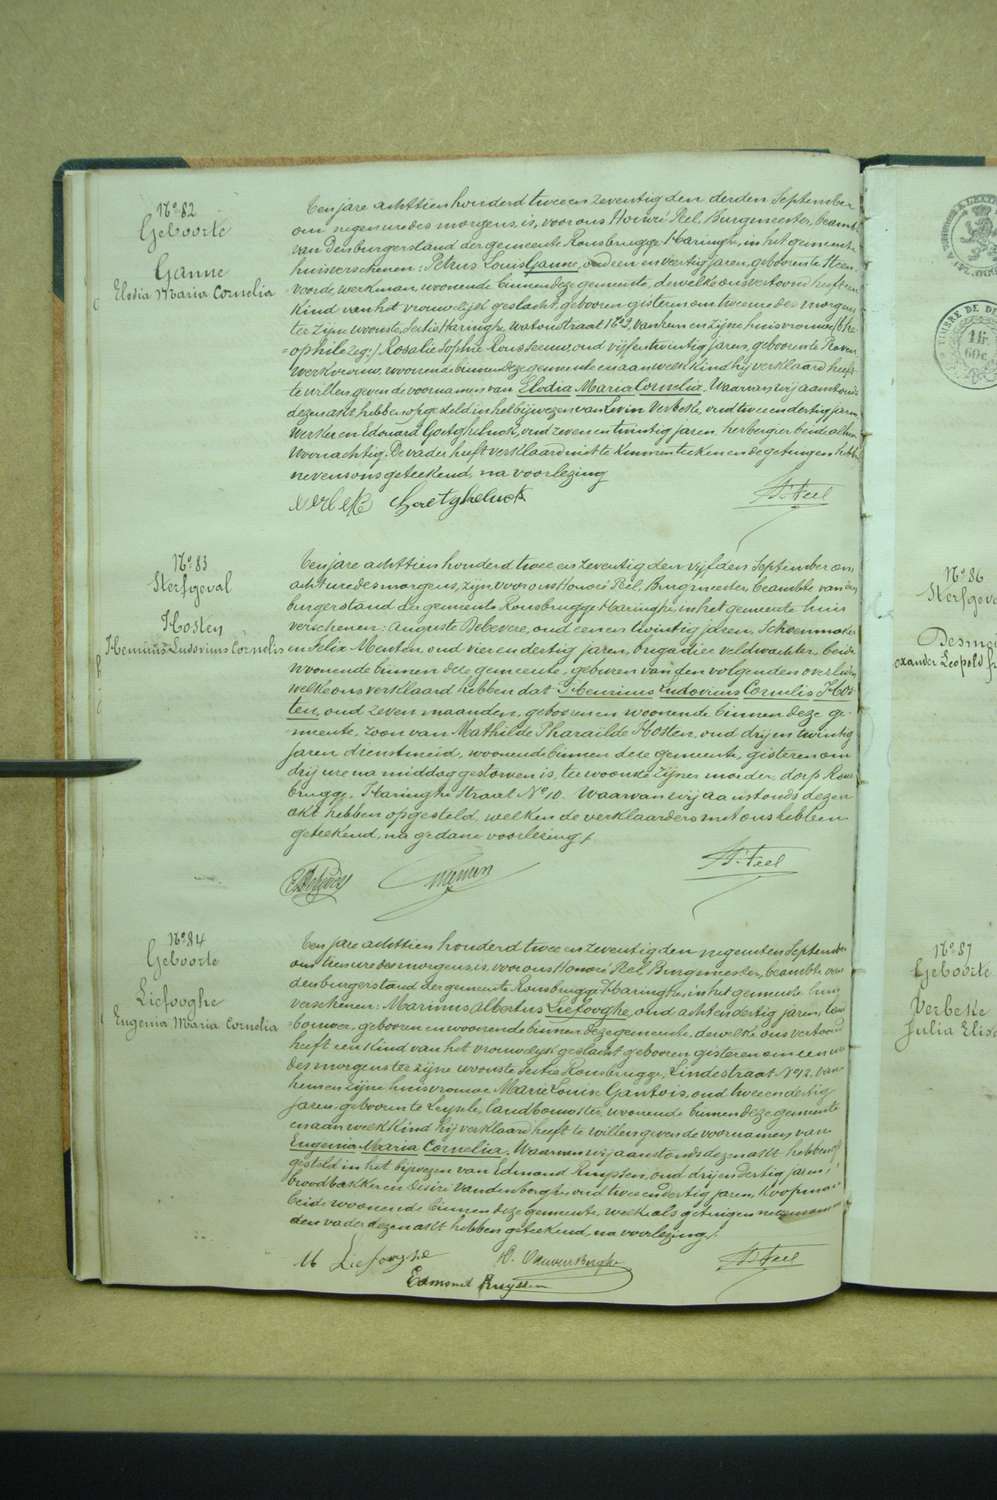 N° 82
Geboorte
Ganne
Elodia Maria Cornelia
Ten jare achttien honderd twee en zeventig den derden September
om negen ure des morgens, is, voor ons Honoré Peel, Burgmeester, beambte
van den burgerstand der gemeente Rousbrugge-Haringhe, in het gemeente
huis verschenen: Petrus Louis Ganne, oud een en veertig jaren, geboren te Steen
voorde, werkman, woonende binnen deze gemeente, dewelke ons vertoond heeft een
kind van het vrouwelijk geslacht, geboren gisteren om twee ure des morgens
ter zijne woonste, Sectie Haringhe, straat N° 9, van hem en zijne huisvrouw
Rosalie Sophie Rousseeuw, oud vijf en twintig jaren, geboren te
werkvrouw, woonende binnen deze gemeente en aan welk kind hij verklaard heeft
te willen geven de voornamen van Elodia Maria Cornelia. Waarvan wij aanstonds
dezen akt hebben opgesteld in het bijwezen van Levin Verbeke, oud twee en dertig jaren,
werker en Edouard Goetghelinck, oud zeven en twintig jaren, herbergier beide alhier
woonachtig. De vader heeft verklaard niet te kunnen teekenen en de getuigen hebben
nevens ons geteekend, na voorlezing
Verbeke H. Peel
N° 83
Sterfgeval
Hosten
Henricus Ludovicus Cornelis
Ten jare achttien honderd twee en zeventig den vijfden September om
acht ure des morgens, zijn voor ons Honoré Peel, Burgmeester, beambte van den
burgerstand der gemeente Rousbrugge-Haringhe, in het gemeente huis
verschenen: Auguste Debevere, oud een en twintig jaren, Schoenmaker
en Felix Menten, oud vier en dertig jaren, brigadier veldwachter, beide
woonende binnen deze gemeente, geburen van den volgenden overleden,
welke ons verklaard hebben dat Henricus Ludovicus Cornelis Hos-
ten, oud zeven maanden, geboren en woonende binnen deze ge-
meente, zoon van Mathilde Tharailde Hosten, oud drij en twintig
jaren, dienstmeid, woonende binnen deze gemeente, gisteren om
drij ure na middag gestorven is, ter woonste zijner moeder, dorp Rous
brugge, Haringhe Straat N° 10. Waarvan wij aanstonds dezen
akt hebben opgesteld, welken de verklaarders met ons hebben
geteekend, na gedane voorlezing.
H. Peel
N° 84
Geboorte
Liefooghe
Eugenia Maria Cornelia
Ten jare achttien honderd twee en zeventig den negensten September
om tien ure des morgens, is, voor ons Honoré Peel, Burgmeester, beambte van
den burgerstand der gemeente Rousbrugge-Haringhe, in het gemeente huis
verschenen: Marinus Albertus Liefooghe, oud acht en dertig jaren, land
bouwer, geboren en woonende binnen deze gemeente, dewelke ons vertoond
heeft een kind van het vrouwelijk geslacht, geboren gisteren om een ure
des morgens ter zijne woonste Sectie Rousbrugge, Lindestraat N° 12, van
hem en zijne huisvrouw Marie Louise Gantois, oud twee en dertig
jaren, geboren te Leysele, landbouwster, woonende binnen deze gemeente
en aan welk kind hij verklaard heeft te willen geven de voornamen van
Eugenia Maria Cornelia. Waarvan wij aanstonds dezen akt hebben op
gesteld in het bijwezen van Edmond Ruyssen, oud drij en dertig jaren,
broodbakker en Désiré Vandenberghe, oud twee en dertig jaren, koopman
beide woonende binnen deze gemeente, welke als getuigen
den vader dezen akt hebben geteekend, na voorlezing.
M Liefooghe D. Vandenberghe H. Peel
Edmond Ruyssen
N° 86
Sterfgeva
Desm
exander Leopold
N° 87
Geboorte
Verbeke
Julia Elis